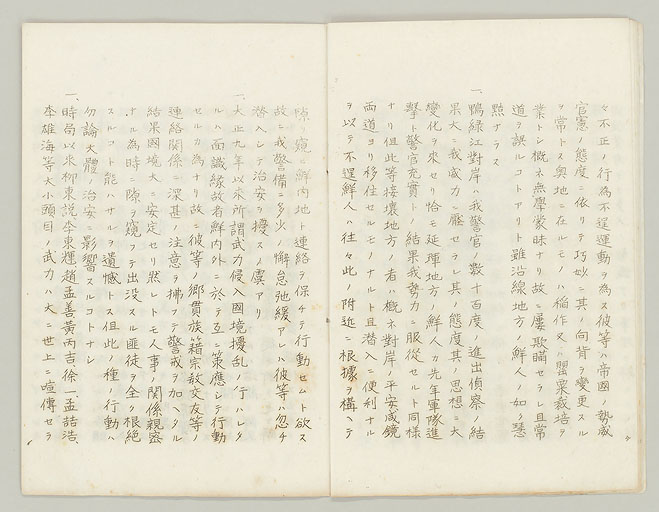 々不正ノ行為不逞運動ヲ為ス彼等ハ帝國ノ勢威
官憲ノ態度ニ依リテ巧妙ニ其ノ向背ヲ變更スル
ヲ常トス奥地ニ在ルモノハ稲作又ハ罌粟栽培ヲ
業トシ概ネ無學蒙昧ナリ故ニ屢欺瞞セラレ且常
道ヲ誤ルコトアリト雖沿線地方ノ鮮人ノ如ク
點ナラス
一、鴨緑江對岸ハ我警官ノ數十百度ノ進出偵察ノ結
果大ニ我威力ニ壓セラレ其ノ態度其ノ思想ニ大
變化ヲ來セリ恰モ延琿地方ノ鮮人カ先年軍隊進
擊ト警官充實トノ結果我勢力ニ服從セルト同樣
ナリ但此等接壤地方ノ者ハ概ネ對岸ノ平安咸鏡
両道ヨリ移住セルモノナルト且潜入ニ便利ナル
ヲ以テ不逞鮮人ハ往々此ノ附近ニ根據ヲ構ヘテ
隙ヲ窺ヒ鮮内地ト連絡ヲ保チテ行動セムト欲ス
故ニ我警備ニ多少ノ懈怠弛緩アレハ彼等ハ忽チ
潜入シテ治安ヲ擾スノ虞アリ
一、大正九年以來所謂武力侵入國境擾乱ノ行ハレタ
ルハ面識縁故者鮮内外ニ於テ互ニ策應シテ行動
セルカ為ナリ故ニ彼等ノ郷貫族籍宗教交友等ノ
連絡関係ニ深甚ノ注意ヲ拂フテ警戒ヲ加ヘタル
結果國境大ニ安定セリ然レトモ人事ノ関係親密
ナル為時ニ隙ヲ窺フテ出没スル匪徒ヲ全ク根絶
スルコト能ハサルヲ遺憾トス但此ノ種ノ行動ハ
勿論大體ノ治安ニ影響スルコトナシ
一、時局以來柳東説李東輝趙孟善黄丙吉徐一孟喆浩、
李雄海等大小頭目ノ武力ハ大ニ世上ニ喧傳セラ